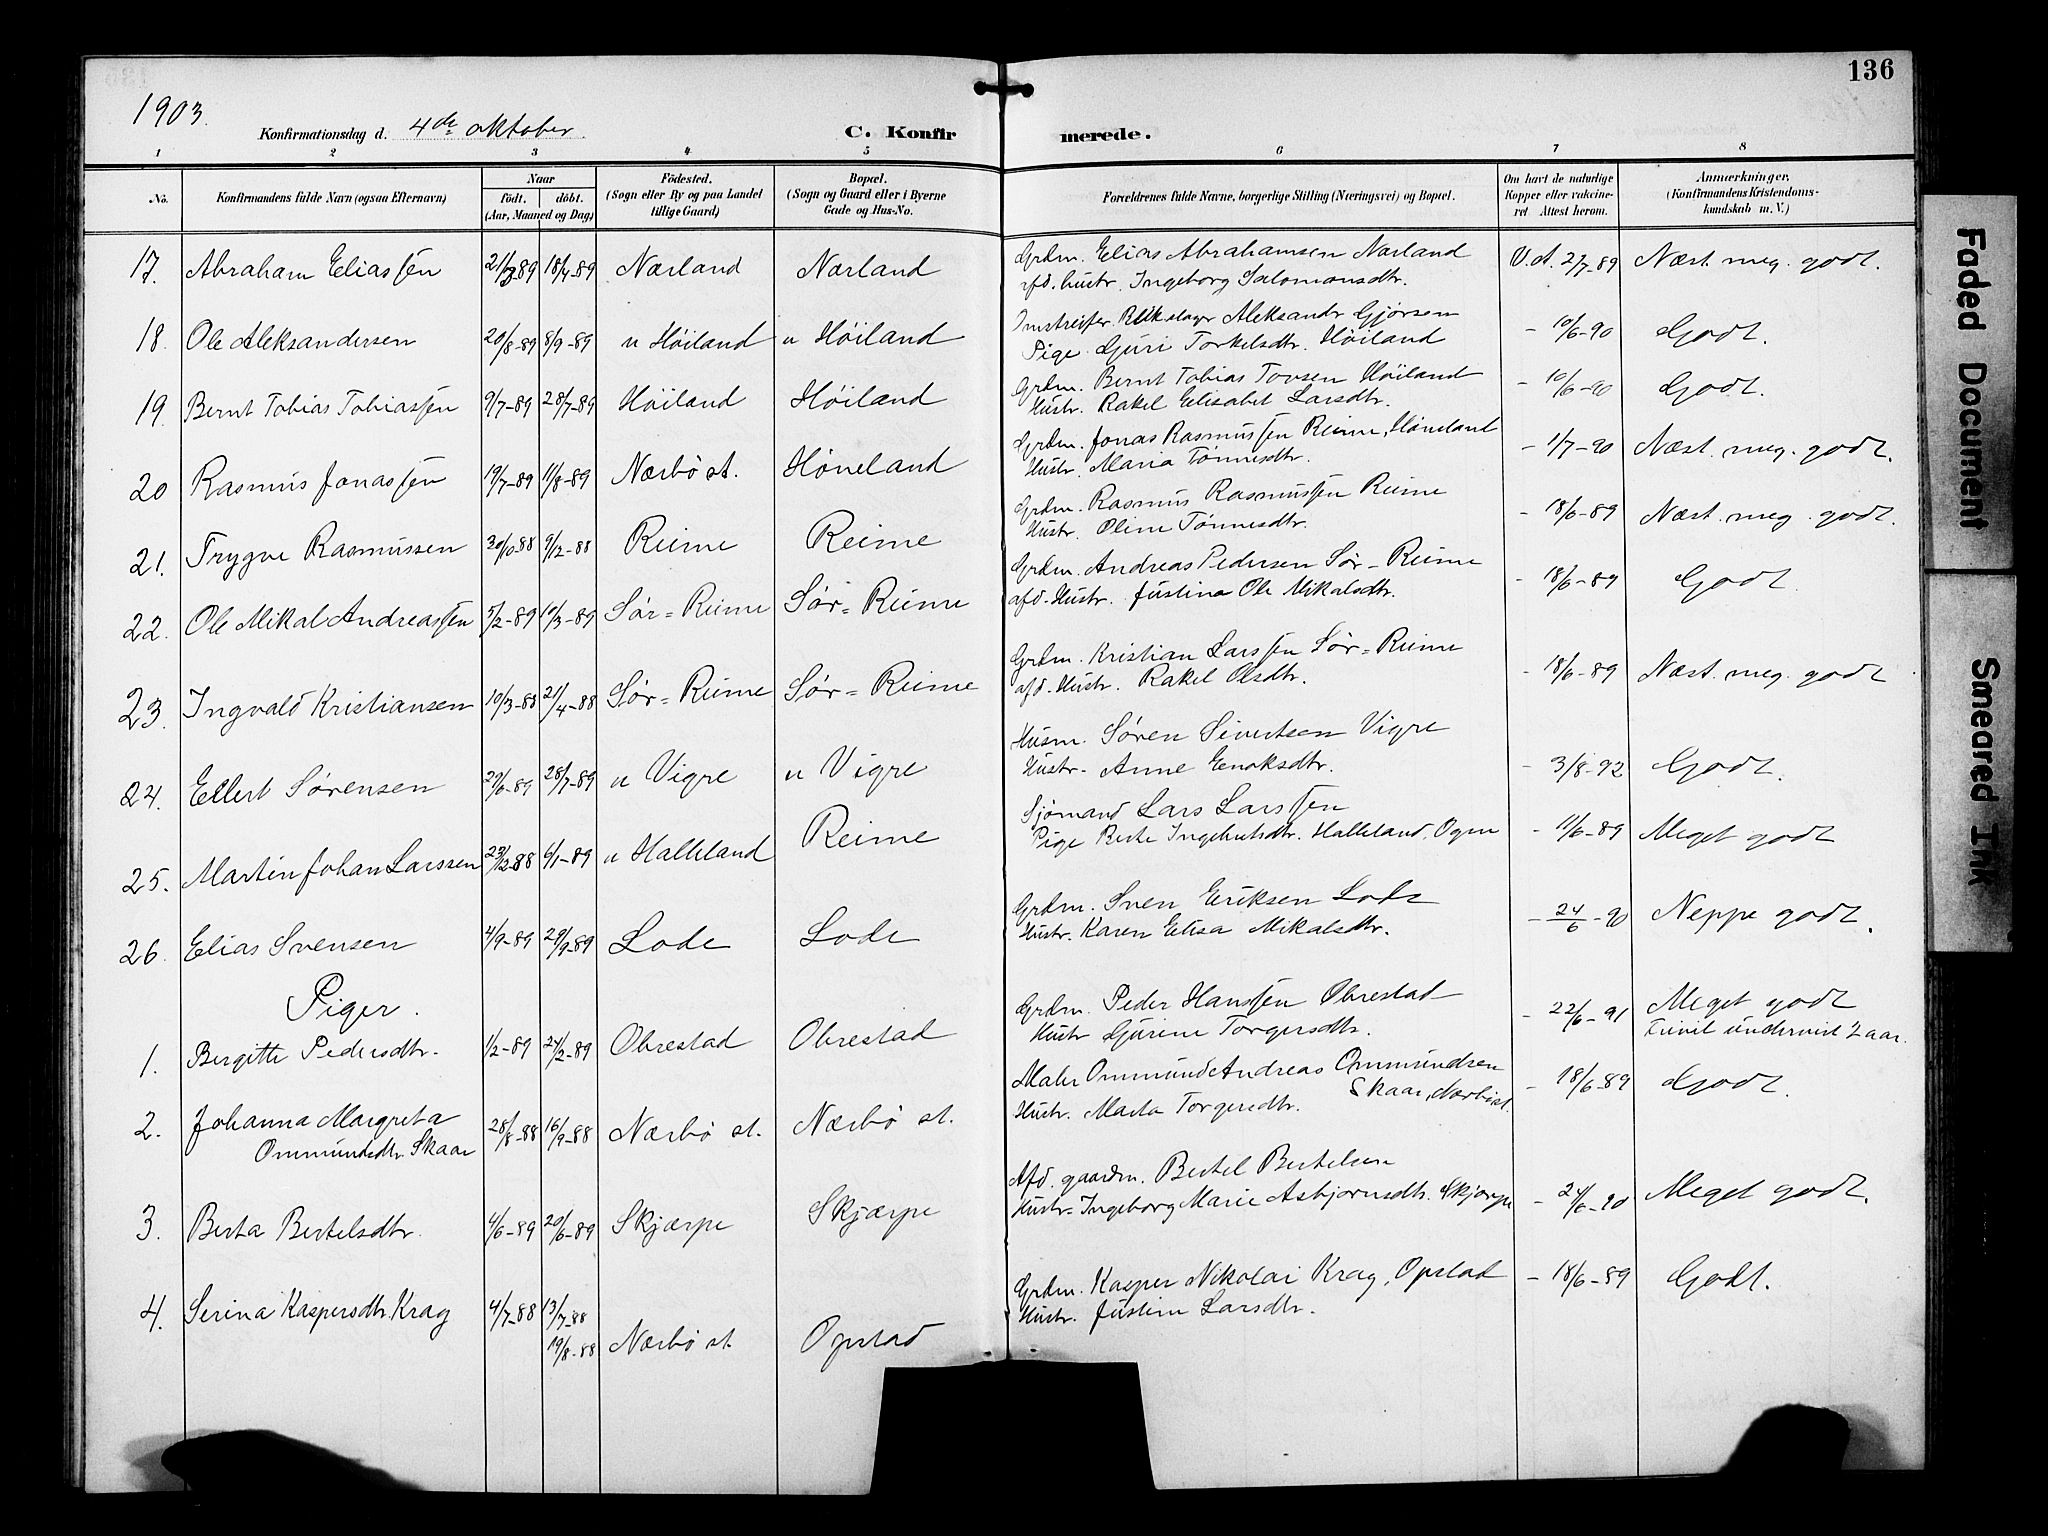 136
1903.
Konfirmationsdag d. 4de oktober.
C. Konfirmerede.
1 2 3 4 5 6 7 8
No. Konfirmandens fulde Navn (ogsaa Efternavn) Naar født. døbt. (Aar, Maaned og Dag) Fødested. (Sogn eller By og paa Landet tillige Gaard) Bopæl. (Sogn og Gaard eller i Byerne Gade og Hus-No. Forældrenes fulde Navne, borgerlige Stilling (Næringsvei) og Bopæl. Om havt de naturlige Kopper eller vakcineret Attest herom. Anmærkninger. (Konfirmandens Kristendomskundskab m. V.)
17. Abraham Eliassen 21/3-89 18/4-89 Nærland Nærland Grdm. Elias Abrahamsen Nærland V.A. 2/7-89 Næst. meg. godt.
afd. hustr. Ingeborg Salomonsdtr.
18. Ole Aleksandersen 20/8-89 8/9-89 u Høiland u Høiland Aleksander Gjørsen - 10/6-90 Godt.
Pige Guri Torkelsdtr. Høiland
19. Bernt Tobias Tobiassen 9/7-89 28/7-89 Høiland Høiland Grdm. Bernt Tobias Tovsen Høiland - 10/6-90 Godt.
Hustr. Rakel Elisabet Larsdtr.
20 Rasmus Jonassen 19/7-89 11/8-89 Nærbø st. Høneland Grdm. Jonas Rasmussen Reime, Høneland - 1/7-90 Næst. meg. godt.
Hustr. Maria Tønnesdtr.
21. Trygve Rasmussen 30/10-88 9/12-88 Reime Reime Grdm. Rasmus Rasmussen Reime - 18/6-89 Næst. meg. godt.
Hustr. Oline Tønnesdtr.
22. Ole Mikal Andreassen 5/2-89 10/3-89 Sør=Reime Sør=Reime Grdm. Andreas Pedersen Sør-Reime - 18/6-89 Godt.
afd. Hustr. Justina Ole Mikalsdtr.
23. Ingvald Kristiansen 10/3-88 21/4-88 Sør=Reime Sør=Reime Grdm. Kristian Larssen Sør=Reime - 18/6-89 Næst. meg. godt
afd. Hustr. Rakel Olsdtr.
24. Ellert Sørensen 29/6-89 28/7-89 u Vigre u Vigre Husm. Søren Sivertsen Vigre - 3/8-92 Godt.
Hustr. Anne Enoksdtr.
25. Martin Johan Larssen 29/12-88 6/1-89 u Halleland Reime Sjømand Lars Larssen - 11/6-89 Meget godt
Pige Berte Ingebretsdtr. Halleland, Ogne
26. Elias Svensen 4/9-89 29/9-89 Lode Lode Grdm. Sven Eriksen Lode - 24/6-90 Neppe godt.
Hustr. Karen Elisa Mikalsdtr.
Piger.
1. Bergitte Pedersdtr. 1/2-89 24/2-89 Obrestad Obrestad Grdm. Peder Hanssen Obrestad - 22/6-91 Meget godt
Hustr Gurine Torgersdtr. undervist 2 aar.
2. Johanna Margreta 28/8-88 16/9-88 Nærbø st. Nærbø st. Maler Ommund Andreas Ommundsen - 18/6-89 Godt.
Ommundsdtr. Skaar Hustr. Marta Torgersdtr. Skaar, Nærbø st.
3. Berta Bertelsdtr. 4/6-89 20/6-89 Skjærpe Skjærpe Afd. gaardm. Bertel Bertelsen - 24/6-90 Meget godt.
Hustr. Ingeborg Marie Asbjørnsdtr. Skjærpe
4. Serina Kaspersdtr. Krag 4/7-88 13/7-88 Grdm. Kasper Nikolai Krag, Opstad - 18/6-89 Godt.
19/8-88 Nærbø st. Opstad Hustr. Justine Larsdtr.
Faded Document
Smeared Ink